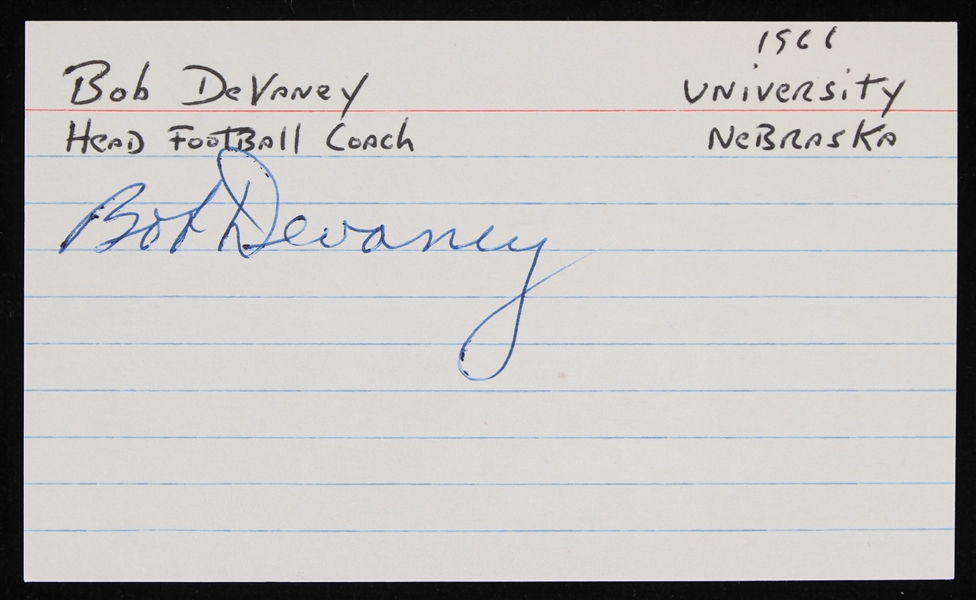 Bob DeVaney
1966
University
Head Football Coach
Nebraska
Bob Devaney